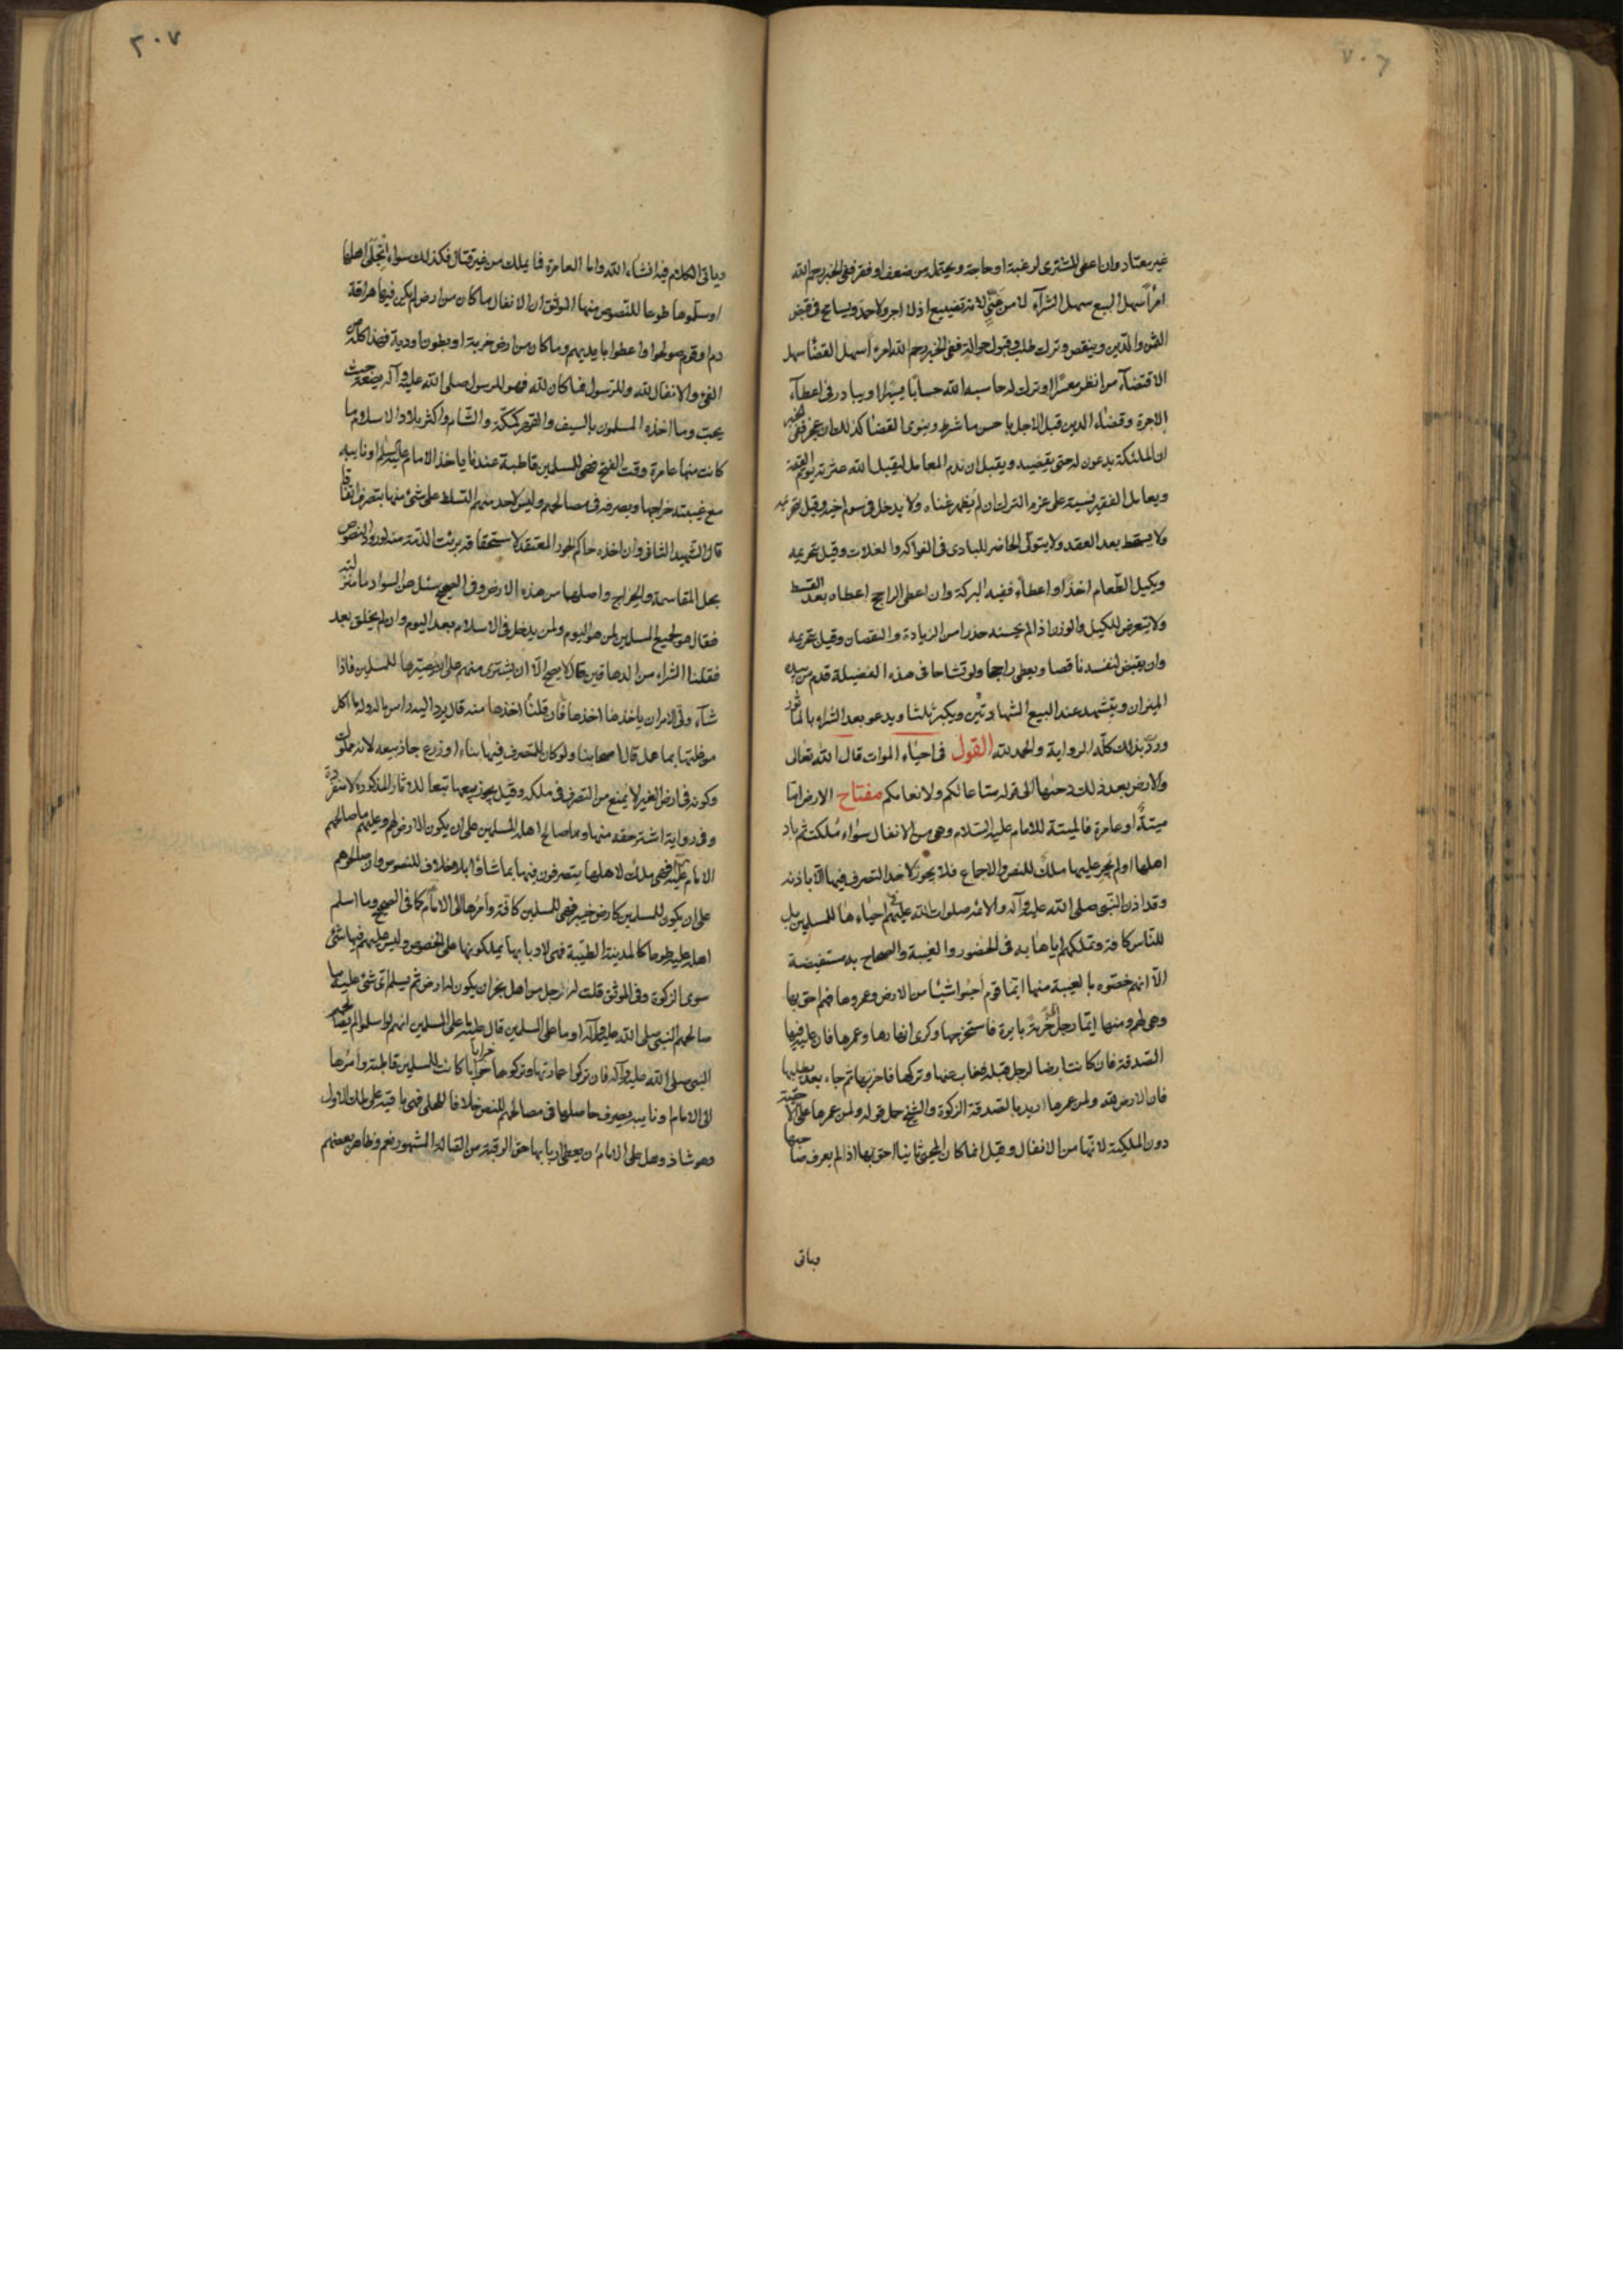 ٧٠٦
غير معتاد وان اعطى المشترى لرغبة او حاجة ويحتمل من ضعف او فقر ففى الخبر رحم الله
امرأ سهل البيع سهل الشرآء لا من غنى لانه تضييع اذ لا اجر ولا حمد ويسامح فى قبض
الثمن والدين وينقص وترك طلب وقبول حوالة ففى الخبر رحم الله امرء اسهل القضا سهل
الاقتضآء من انظر معسرا او ترك له حاسبه الله حسابا يسيرا ويبادر فى اعطآء
الاجرة وقضاء الدين قبل الاجل باحسن ما شرط وينوى القضا كذلك ان عجز ففى الخبر
ان الملئكة يدعون له حتى يقضيه ويقيل ان ندم المعامل ليقيل الله عثرته يوم القيمة
ويعامل الفقير نسية على عزم الترك ان لم يظهر غناه ولا يدخل فى سوم اخيه وقيل بتحريمه
ولا يسقط بعد العقد ولا يتولى الحاضر للبادى فى الفواكه والغلات وقيل بتحريمه
ويكيل الطعام اخذا واعطاء ففيه البركة وان اعطى الراجح اعطاه بعد القسط
ولا يتعرض للكيل والوزن اذا لم يحسنه حذرا من الزيادة والنقصان وقيل بتحريمه
وان يقبض لنفسه ناقصا ويعطى راجحا ولو تشاحا فى هذه الفضيلة قدم من بيده
الميزان ويتشهد عند البيع الشهادتين ويكبر ثلثا ويدعو بعد الشراء بالماثور
ورد بذلك كله الرواية والحمد لله القول فى احياء الموات قال الله تعالى
والارض بعد ذلك دحيها الى قوله متاعا لكم ولانعامكم مفتاح الارض اما
ميتة او عامرة فالميتة للامام عليه السلام وهى من الانفال سواء ملكت ثم باد
اهلها او لم يجر عليها ملك للنص والاجماع فلا يجوز لاحد التصرف فيها الا باذنه
وقد اذن النبى صلى الله عليه وآله والائمه صلوات الله عليهم فى احياءها للمسلمين بل
للناس كافة وتملكهم اياها به فى الحضور والغيبة والصحاح به مستفيضة
الا انهم خصوه بالغيبة منها ايما قوم احيوا شيئا من الارض وعمروها فهم احق بها
وهى لهم ومنها ايما رجل اتى خربة بايرة فاستخرجها وكرى انهارها وعمرها فان عليه فيها
الصدقة فان كانت ارضا لرجل قبله فغاب عنها وتركها فاخربها ثم جاء بعد يطلبها
فان الارض لله ولمن عمرها اريد بالصدقة الزكوة والشيخ حمل قوله ولمن عمرها على الاحقية
دون الملكية لانها من الانفال وقيل انما كان المحيى ثانيا احق بها اذا لم يعرف صاحبها
وياتى
٢٠٧
وياتى الكلام فيه انشاء الله واما العامرة فما يملك من غير قتال فكذلك سواء انجلى اهلها
او سلموها طوعا للنصوص منها الموثق ان الانفال ما كان من ارض لم يكن فيها هراقة
دم او قوم صولحوا واعطوا بايديهم وما كان من ارض خربة او بطون اودية فهذا كله من
الفىء والانفال لله وللرسول فما كان لله فهو للرسول صلى الله عليه وآله يضعه حيث
يحب وما اخذه المسلمون بالسيف والقهر كمكة والشام واكثر بلاد الاسلام وما
كانت منها عامرة وقت الفتح فهى للمسلمين قاطبة عندنا ياخذ الامام عليه السلام او نايبه
مع غيبته خراجها ويصرفه فى مصالحهم وليس لاحد منهم التسلط على شىء منها بتصرف اتفاقا
قال الشهيد الثانى وان اخذه حاكم الجور المعتقد لاستحقاقه برئت الذمة منه لورود النصوص
بحل المقاسمة والخراج واصلهما من هذه الارض وفى الصحيح سئل عن السواد ما منزلته
فقال هو لجميع المسلمين لمن هو اليوم ولمن يدخل فى الاسلام بعد اليوم وان لم يخلق بعد
فقلنا الشراء من الدهاقين قال لا يصح الا ان يشترى منهم على ان يصيرها للمسلمين فاذا
شآء ولى الامر ان ياخذها اخذها فان قلنا اخذها منه قال يرد اليه راس ماله وله ما اكل
من غلتها بما عمل قال اصحابنا ولو كان للمتصرف فيها بناء او زرع جاز بيعه لانه مملوك
وكونه فى ارض الغير لا يمنع من التصرف فى ملكه وقيل يجوز بيعها تبعا للاثار المذكورة لا منفردة
وفى رواية اشتر حقه منها وما صالح اهله المسلمين على ان يكون الارض لهم وعليهم ما صالحهم
الامام عليه فهى ملك لاهلها يتصرفون فيها بما شاؤا بلا خلاف للنصوص وان صالحوهم
على ان يكون للمسلمين كارض خيبر فهى للمسلمين كافة وامرها الى الامام كما فى الصحيح وما اسلم
اهله عليه طوعا كالمدينة الطيبة فهى لاربابها يملكونها على الخصوص وليس عليهم فيها شىء
سوى الزكوة وفى الموثق قلت له رجل من اهل نجران يكون له ارض ثم يسلم اى شىء عليه ما
صالحهم النبى صلى الله عليه وآله او ما على المسلمين قال عليه ما على المسلمين انهم لو اسلموا لم يصالحهم
النبى صلى الله عليه وآله فان تركوا عمارتها وتركوها خرابا كانت للمسلمين قاطبة وامرها
الى الامام او نايبه يصرف حاصلها فى مصالحهم للنص خلافا للحلى فهى باقية على ملك الاول
وهو شاذ وهل على الامام ان يعطى اربابها حق الرقبة من القبالة المشهور نعم وظاهر بعضهم